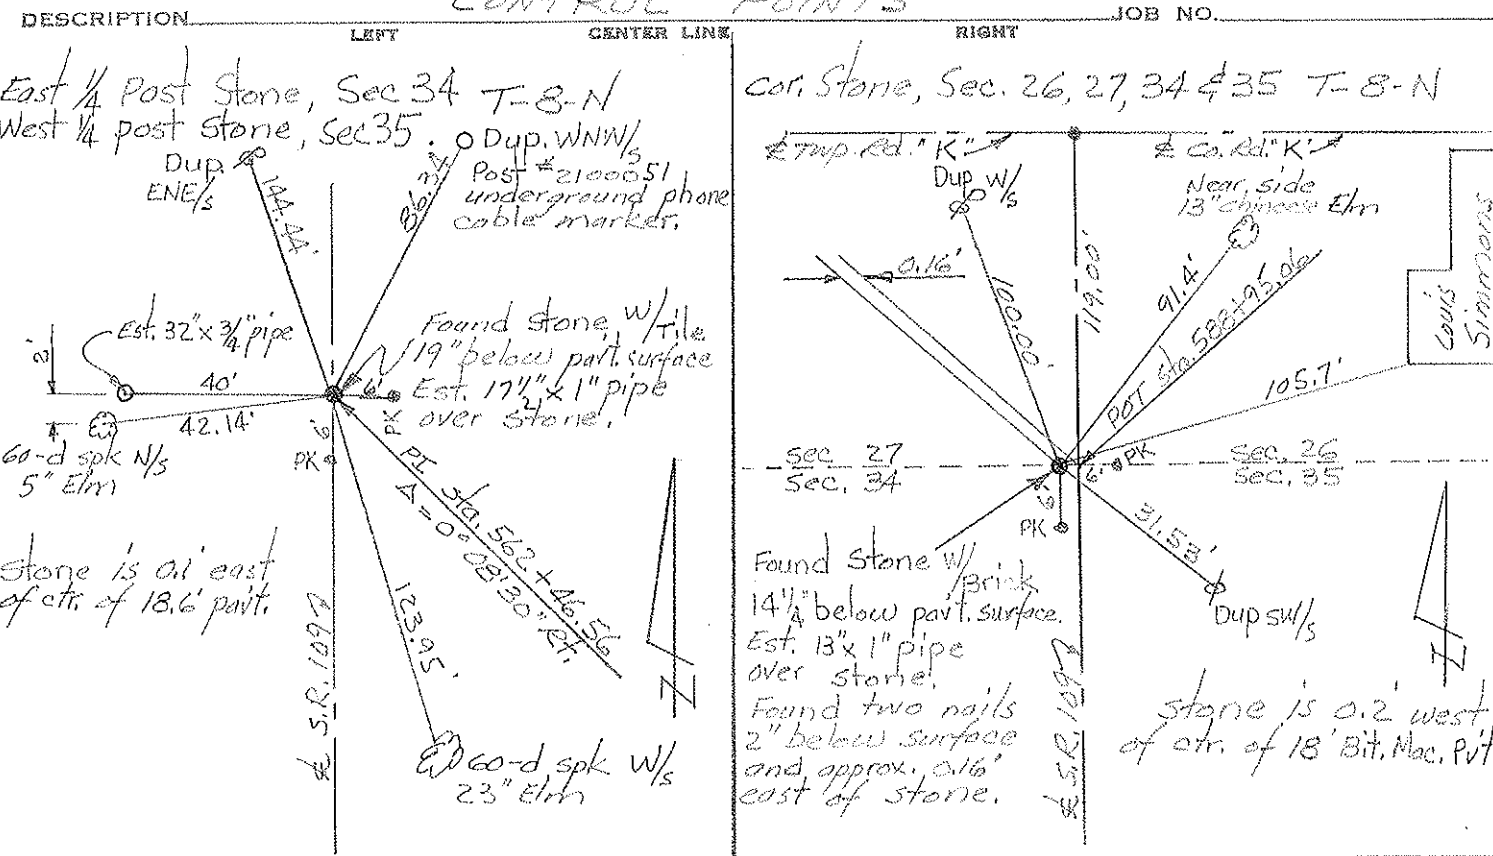 CONTROL POINTS
DESCRIPTION
JOB NO.
LEFT
CENTER LINE
RIGHT
East 1/4 Post Stone, Sec 34 T-8-N
West 1/4 post stone, Sec 35.
Dup. ENE/s
144.44'
86.34'
Dup. WNW/s
Post #2100051
underground phone
cable marker.
Est. 32" x 3/4" pipe
2'
40'
4'
42.14'
60-d spk N/s
5" Elm
Found stone, W/Tile
19" below pavt. surface
Est. 17 1/2" x 1" pipe
over stone.
6'
PK
6'
PK
PI sta. 562+46.56
Δ = 0° 08' 30" Rt.
Stone is 0.1' east
of ctr. of 18.6' pavt.
℄ S.R. 109
123.95'
60-d spk W/s
23" Elm
N
Cor. Stone, Sec. 26, 27, 34 & 35 T-8-N
℄ Twp. Rd. "K"
℄ Co. Rd. "K"
Dup W/s
Near side
13" chinese Elm
Louis
Simmons
0.16'
100.00'
119.00'
91.4'
POT Sta. 588+95.06
105.7'
Sec 27
Sec. 34
Sec. 26
Sec. 35
6'
PK
6'
PK
31.53'
Dup SW/s
Found Stone W/Brick
14 1/4" below pavt. surface.
Est. 13" x 1" pipe
over stone.
Found two nails
2" below surface
and approx. 0.16'
east of stone.
℄ S.R. 109
N
Stone is 0.2' west
of ctr. of 18' Bit. Mac. Pv't